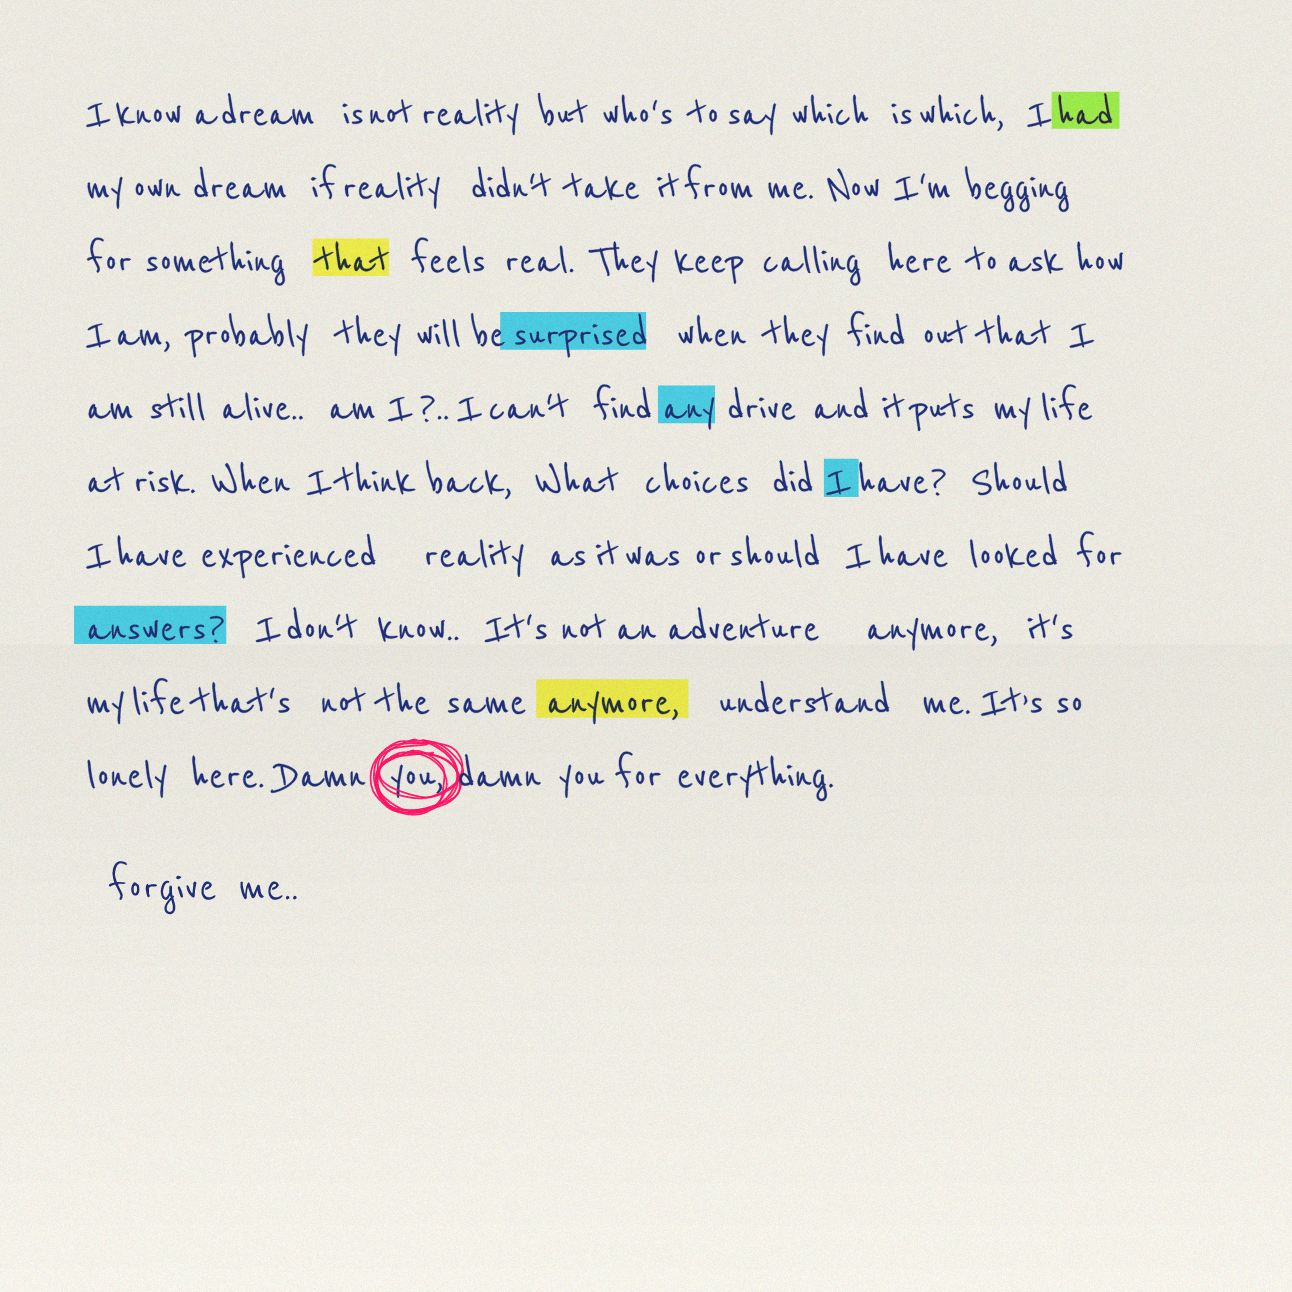 I know a dream is not reality but who's to say which is which, I had
my own dream if reality didn't take it from me. Now I'm begging
for something that feels real. They keep calling here to ask how
I am, probably they will be surprised when they find out that I
am still alive.. am I?.. I can't find any drive and it puts my life
at risk. When I think back, What choices did I have? Should
I have experienced reality as it was or should I have looked for
answers? I don't know.. It's not an adventure anymore, it's
my life that's not the same anymore, understand me. It's so
lonely here. Damn you, damn you for everything.
forgive me..